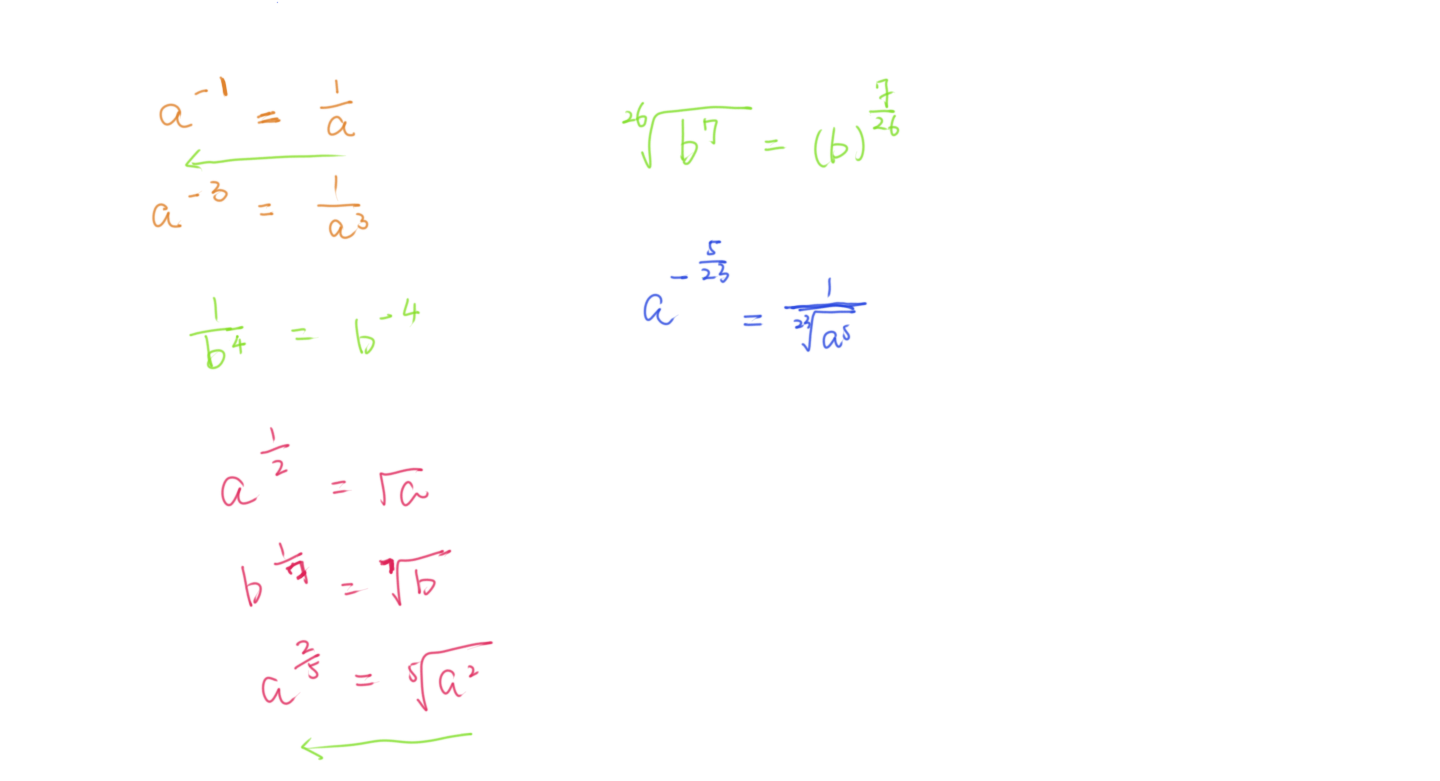 a^{-1} = \frac{1}{a}
a^{-3} = \frac{1}{a^3}
\frac{1}{b^4} = b^{-4}
a^{\frac{1}{2}} = \sqrt{a}
b^{\frac{1}{7}} = \sqrt[7]{b}
a^{\frac{2}{5}} = \sqrt[5]{a^2}
\sqrt[26]{b^7} = (b)^{\frac{7}{26}}
a^{-\frac{5}{23}} = \frac{1}{\sqrt[23]{a^5}}